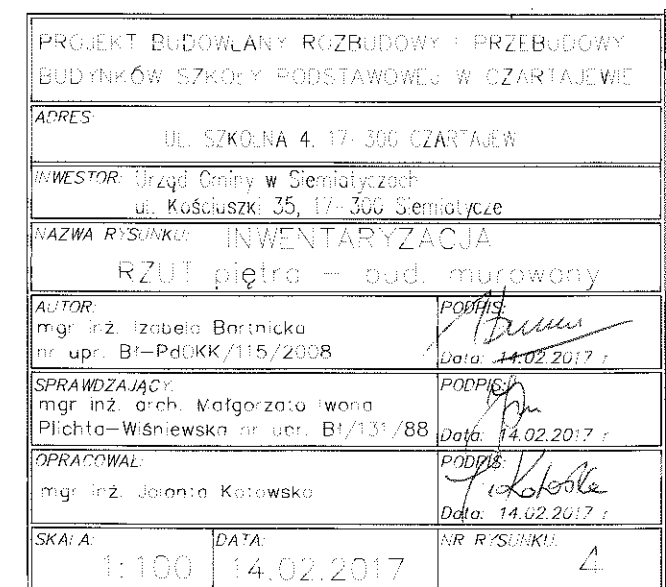 PROJEKT BUDOWLANY ROZBUDOWY I PRZEBUDOWY
BUDYNKÓW SZKOŁY PODSTAWOWEJ W CZARTAJEWIE
ADRES:
UL. SZKOLNA 4, 17-300 CZARTAJEW
INWESTOR: Urząd Gminy w Siemiatyczach
ul. Kościuszki 35, 17-300 Siemiatycze
NAZWA RYSUNKU: INWENTARYZACJA
RZUT piętra – bud. murowany
AUTOR:
mgr inż. Izabela Bartnicka
nr upr. Bł-PdOKK/115/2008
PODPIS:
Data: 14.02.2017 r
SPRAWDZAJĄCY:
mgr inż. arch. Małgorzata Iwona
Plichta-Wiśniewska nr upr. Bł/131/88
PODPIS:
Data: 14.02.2017 r
OPRACOWAŁ:
mgr inż. Jolanta Kotowska
PODPIS:
Data: 14.02.2017 r
SKALA:
1:100
DATA:
14.02.2017
NR RYSUNKU:
4